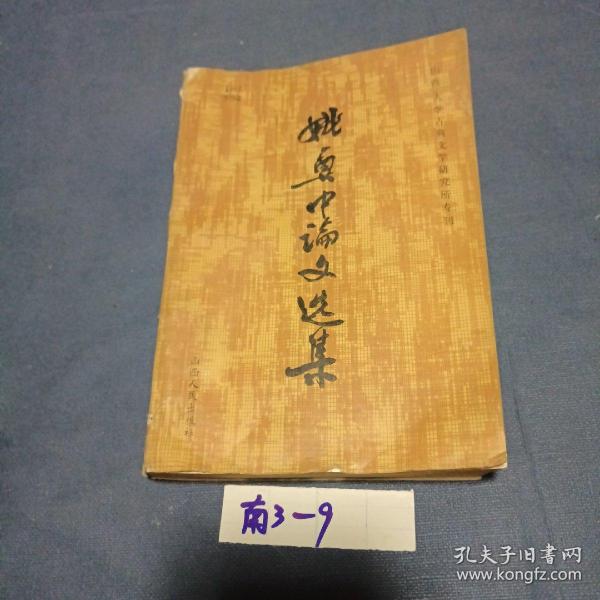 山西大学古典文学研究所专刊
姚奠中论文选集
山西人民出版社
南3-9
孔夫子旧书网
www.kongfz.com